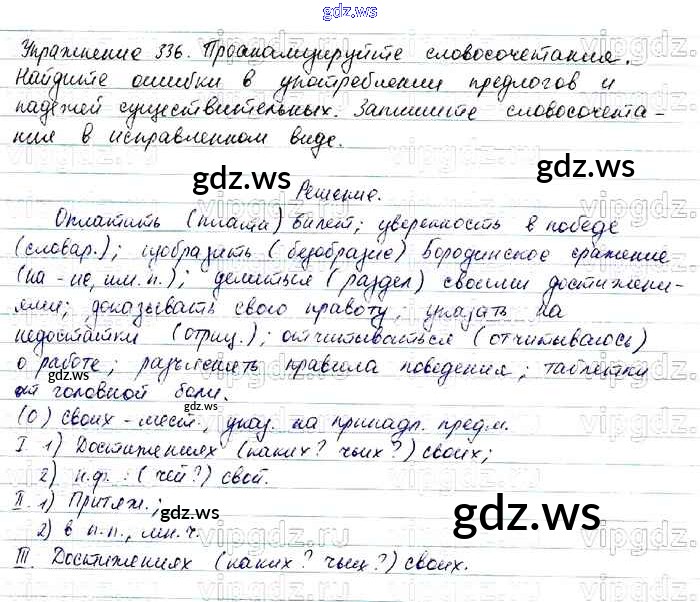 gdz.ws
Упражнение 336. Проанализируйте словосочетания.
Найдите ошибки в употреблении предлогов и
падежей существительных. Запишите словосочета-
ния в исправленном виде.
gdz.ws gdz.ws
Решение.
Оплатить (плата) билет; уверенность в победе
(словар.); изобразить (безобразие) Бородинское сражение
(на -ие, им. п.); делиться (раздел) своими достижени-
ями; доказывать свою правоту; указать на
недостатки (отриц.); отчитываться (отчитываюсь)
о работе; разъяснять правила поведения; таблетки
от головной боли.
gdz.ws
(О) своих - мест., указ. на принадл. предм.
I. 1) Достижениях (каких? чьих?) своих;
2) н.ф.: (чей?) свой.
II. 1) Притяж.;
2) в п.п., мн.ч.
gdz.ws
III. Достижениях (каких? чьих?) своих.
gdz.ws